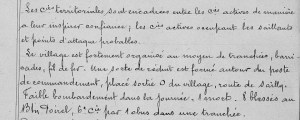 Les Cies territoriales sont encadrées entre les Cies actives de manière
à leur inspirer confiance ; les Cies actives occupent les saillants
et points d'attaque probables.
Le village est fortement organisé au moyen de tranchées, barri-
cades, fil de fer. Une sorte de réduit est formé autour du poste
de commandement, placé sortie O du village, route de Sailly.
Faible bombardement dans la journée. 1 mort. 8 blessés au
Bon 6e Cie par 1 obus dans une tranchée.